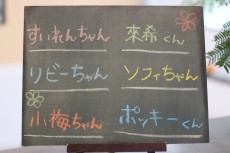 すいれんちゃん
來希くん
リビーちゃん
ソフィちゃん
小梅ちゃん
ポッキーくん